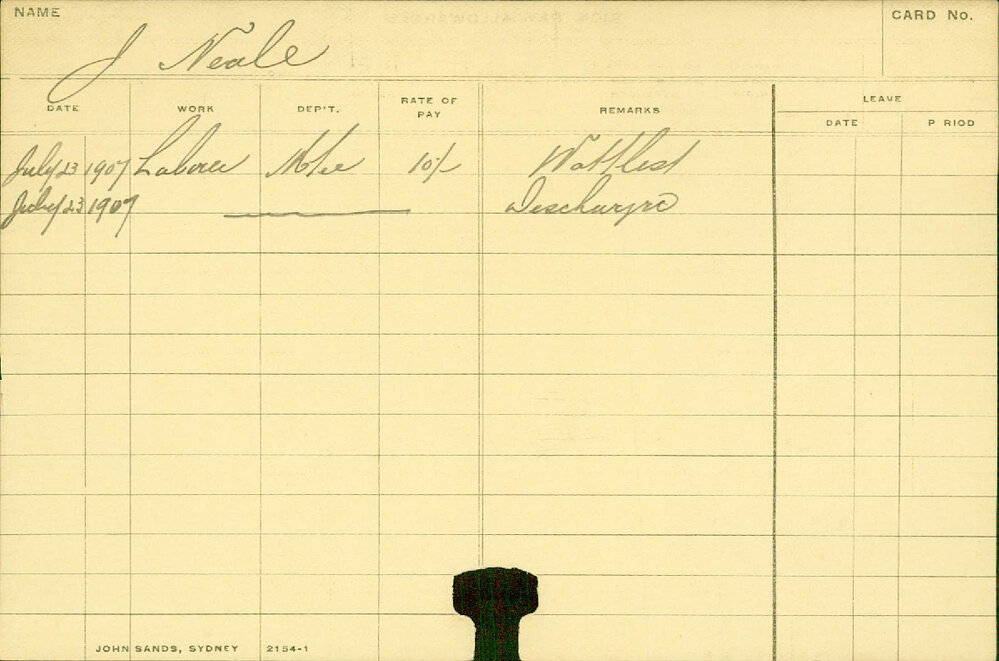 NAME
CARD No.
J Neale
DATE WORK DEP'T. RATE OF PAY REMARKS LEAVE
DATE P RIOD
July 23 1907 Laborer 10/-
July 23 1907
JOHN SANDS, SYDNEY 2154-1